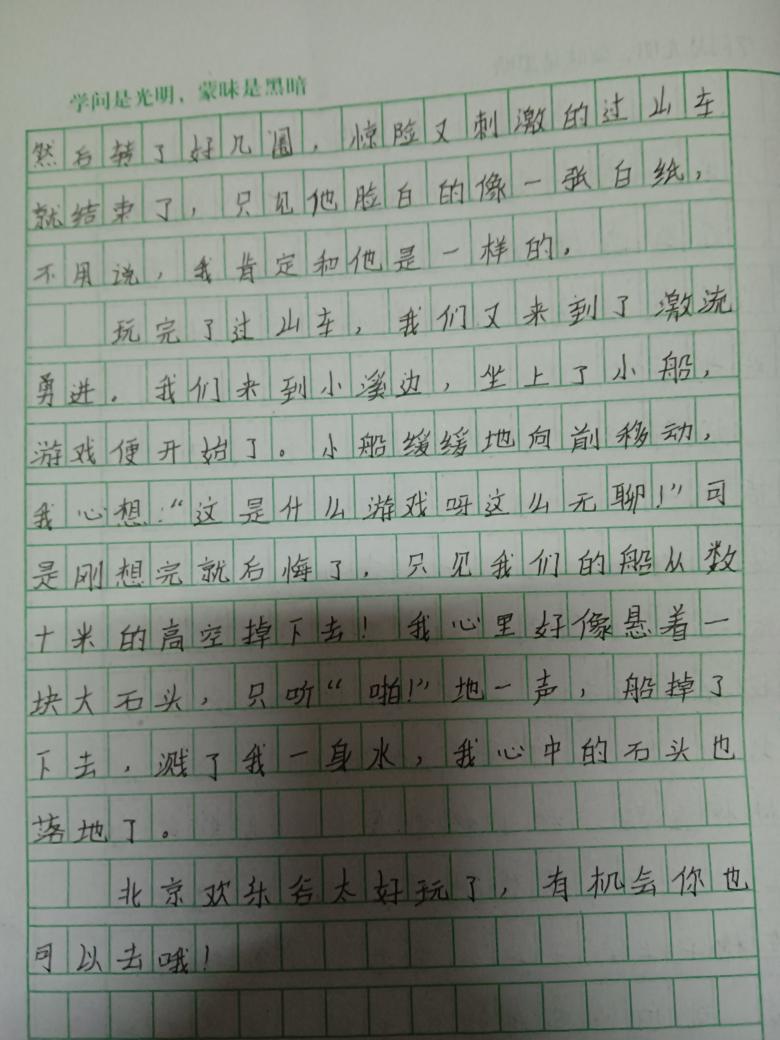 学问是光明，蒙昧是黑暗
然后转了好几圈，惊险又刺激的过山车
就结束了，只见他脸白的像一张白纸，
不用说，我肯定和他是一样的。
玩完了过山车，我们又来到了激流
勇进。我们来到小溪边，坐上了小船，
游戏便开始了。小船缓缓地向前移动，
我心想：“这是什么游戏呀这么无聊！”可
是刚想完就后悔了，只见我们的船从数
十米的高空掉下去！我心里好像悬着一
块大石头，只听“啪！”地一声，船掉了
下去，溅了我一身水，我心中的石头也
落地了。
北京欢乐谷太好玩了，有机会你也
可以去哦！